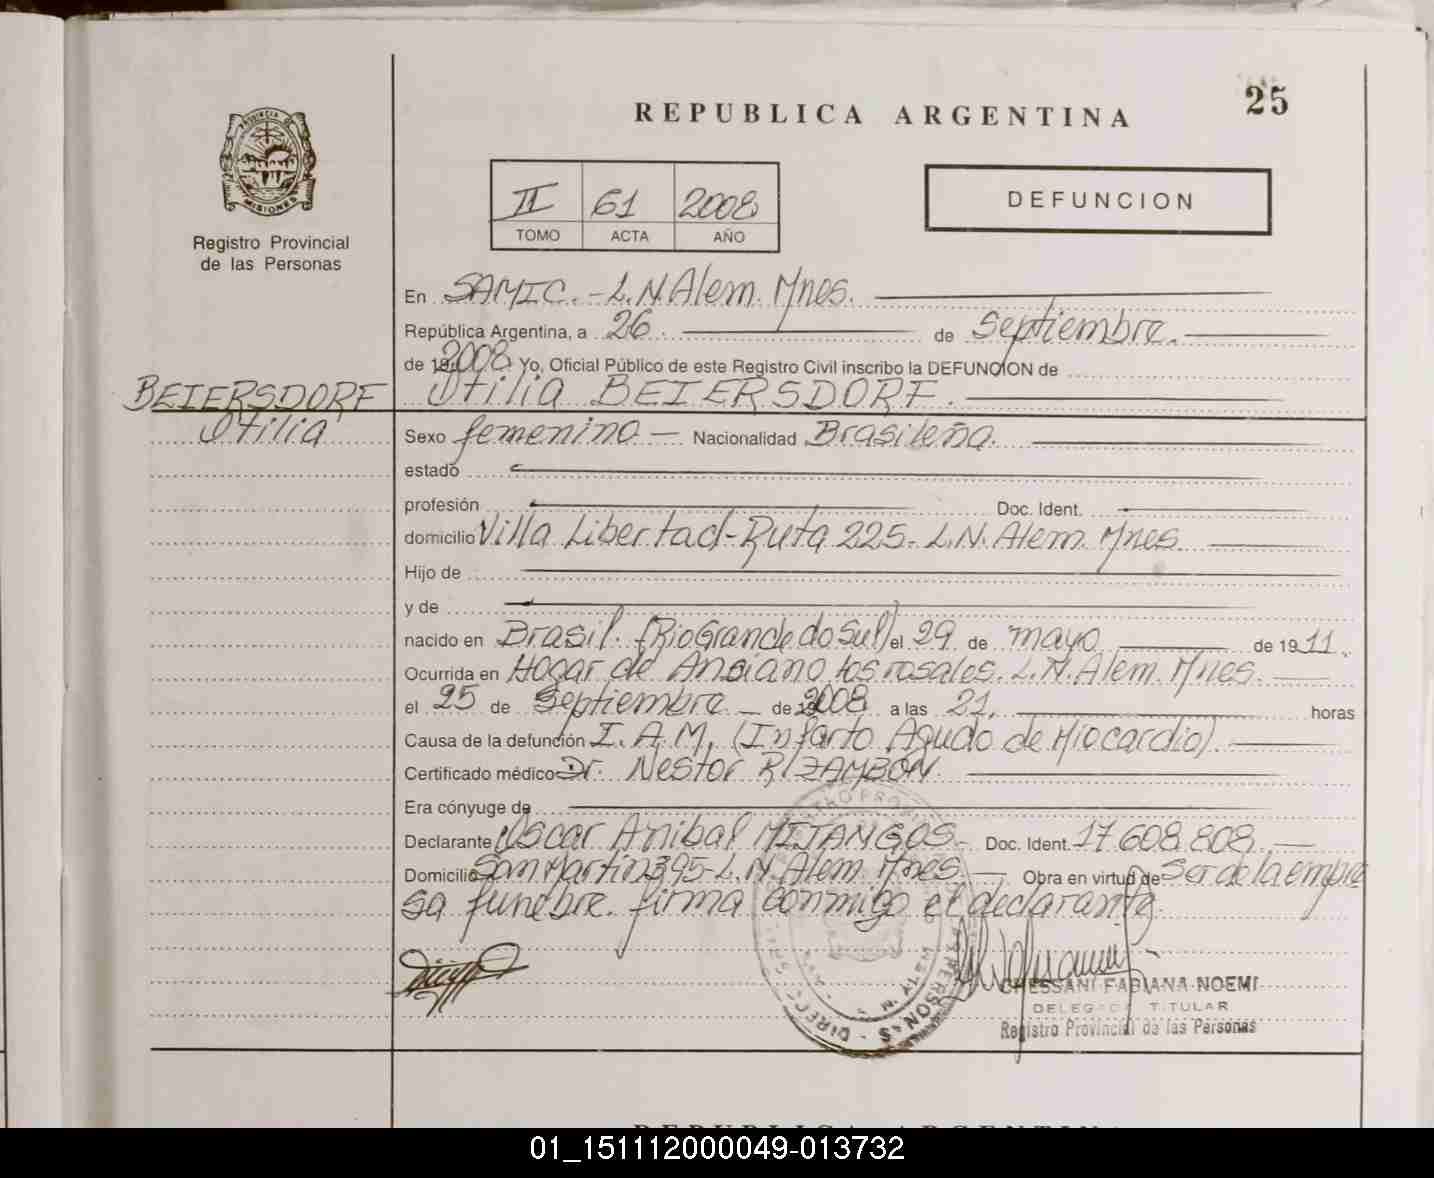 25
REPUBLICA ARGENTINA
PROVINCIA DE
MISIONES
Registro Provincial
de las Personas
II 61 2008
TOMO ACTA AÑO
DEFUNCION
En SAMIC.-L.N.Alem. Mnes.
República Argentina, a 26. de Septiembre.
de 2008. Yo, Oficial Público de este Registro Civil inscribo la DEFUNCION de
Otilia BEIERSDORF.
BEIERSDORF
Otilia
Sexo femenino - Nacionalidad Brasileña.
estado
profesión Doc. Ident.
domicilio Villa Libertad-Ruta 225. L.N. Alem. Mnes.
Hijo de
y de
nacido en Brasil. (Rio Grande do Sul) el 29 de mayo de 1911.
Ocurrida en Hogar de Anciano los rosales. L.N. Alem. Mnes.
el 25 de Septiembre - de 2008 a las 21. horas
Causa de la defunción I.A.M. (Infarto Agudo de Miocardio).
Certificado médico Dr. Nestor R. ZAMBON.
Era cónyuge de
Declarante Oscar Anibal MIJANGOS.- Doc. Ident. 17.608.808.
Domicilio San Martin 395-L.N. Alem. Mnes. Obra en virtud de Ser de la empre
sa funebre. firma conmigo el declarante.
CHESSANI FABIANA NOEMI
DELEGADA TITULAR
Registro Provincial de las Personas
REPUBLICA ARGENTINA
01_151112000049-013732